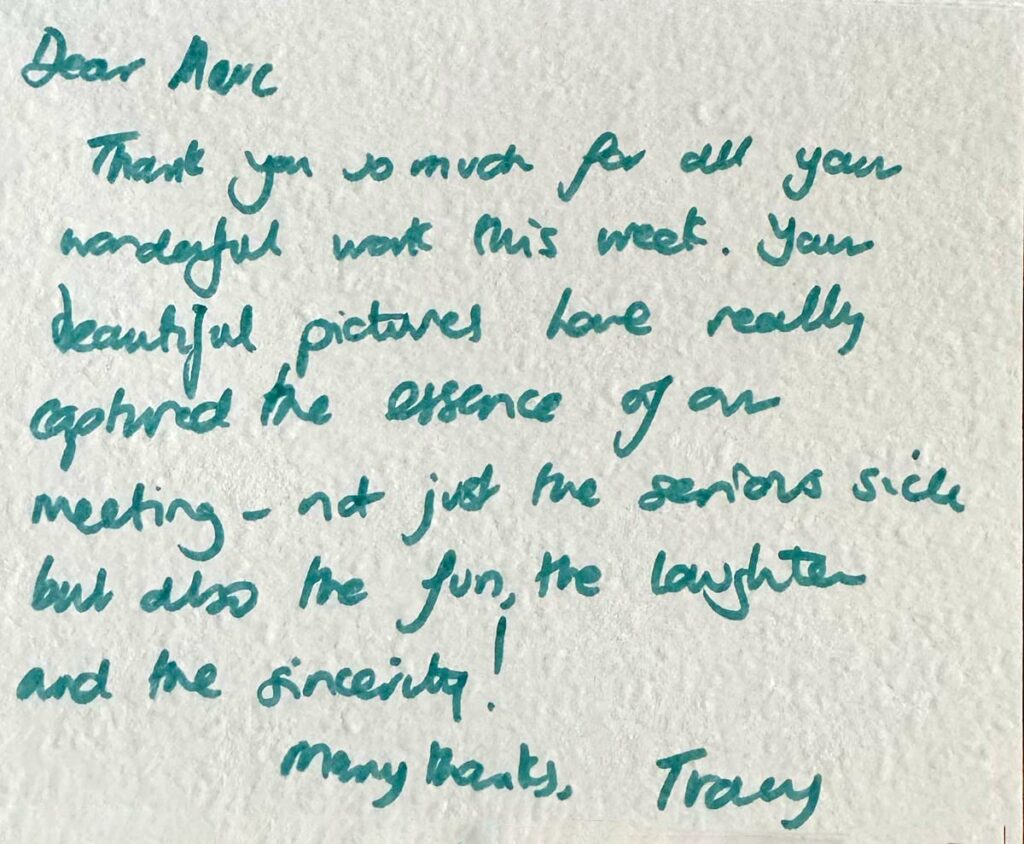 Dear Marc
Thank you so much for all your
wonderful work this week. Your
beautiful pictures have really
captured the essence of our
meeting - not just the serious side
but also the fun, the laughter
and the sincerity!
Many thanks, Tracy